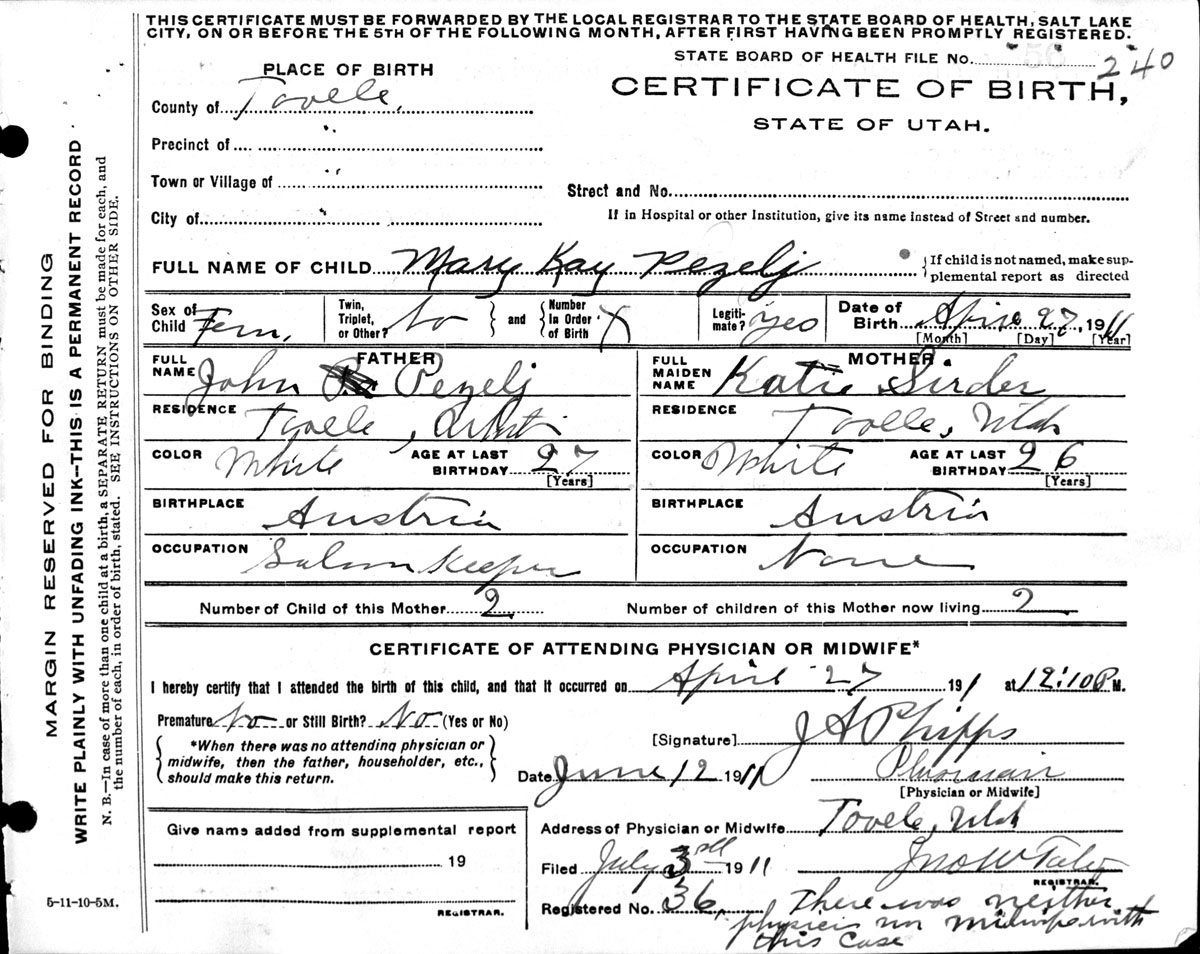 THIS CERTIFICATE MUST BE FORWARDED BY THE LOCAL REGISTRAR TO THE STATE BOARD OF HEALTH, SALT LAKE
CITY, ON OR BEFORE THE 5TH OF THE FOLLOWING MONTH, AFTER FIRST HAVING BEEN PROMPTLY REGISTERED.
STATE BOARD OF HEALTH FILE No. 240
PLACE OF BIRTH
CERTIFICATE OF BIRTH,
STATE OF UTAH.
County of Tooele,
Precinct of "
Town or Village of "
Street and No.
City of "
If in Hospital or other Institution, give its name instead of Street and number.
FULL NAME OF CHILD Mary Kay Pezelj
{If child is not named, make sup-
plemental report as directed
Sex of Child Fem,
Twin, Triplet, or Other? No } and { Number In Order of Birth
Legiti-mate? Yes
Date of Birth April 27, 1911
[Month] [Day] [Year]
FATHER
FULL NAME John Pezelj
RESIDENCE Tooele,
COLOR White AGE AT LAST BIRTHDAY 27
[Years]
BIRTHPLACE Austria
OCCUPATION Saloon Keeper
MOTHER
FULL MAIDEN NAME Katie Surder
RESIDENCE Tooele, Utah
COLOR White AGE AT LAST BIRTHDAY 26
[Years]
BIRTHPLACE Austria
OCCUPATION None
Number of Child of this Mother 2 Number of children of this Mother now living 2
CERTIFICATE OF ATTENDING PHYSICIAN OR MIDWIFE*
I hereby certify that I attended the birth of this child, and that it occurred on April 27 191 1 at 12:10 P M.
Premature No or Still Birth? No (Yes or No)
{*When there was no attending physician or
midwife, then the father, householder, etc.,
should make this return.}
[Signature] J A Phipps
Date June 12 1911 Physician
[Physician or Midwife]
Give name added from supplemental report
19
REGISTRAR.
Address of Physician or Midwife Tooele, Utah
Filed July 3 1911
REGISTRAR.
Registered No. 36, There was neither
physician nor midwife with
this case
5-11-10-5M.
MARGIN RESERVED FOR BINDING
WRITE PLAINLY WITH UNFADING INK—THIS IS A PERMANENT RECORD
N. B.—In case of more than one child at a birth, a SEPARATE RETURN must be made for each, and
the number of each, in order of birth, stated. SEE INSTRUCTIONS ON OTHER SIDE.